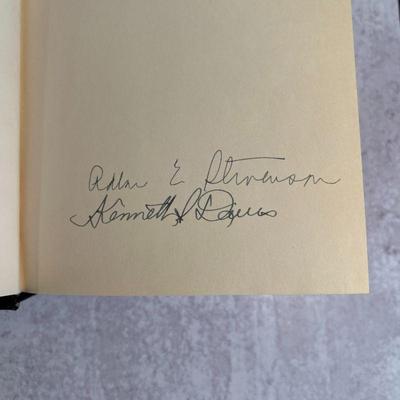 Adlai E Stevenson
Kenneth S Davis